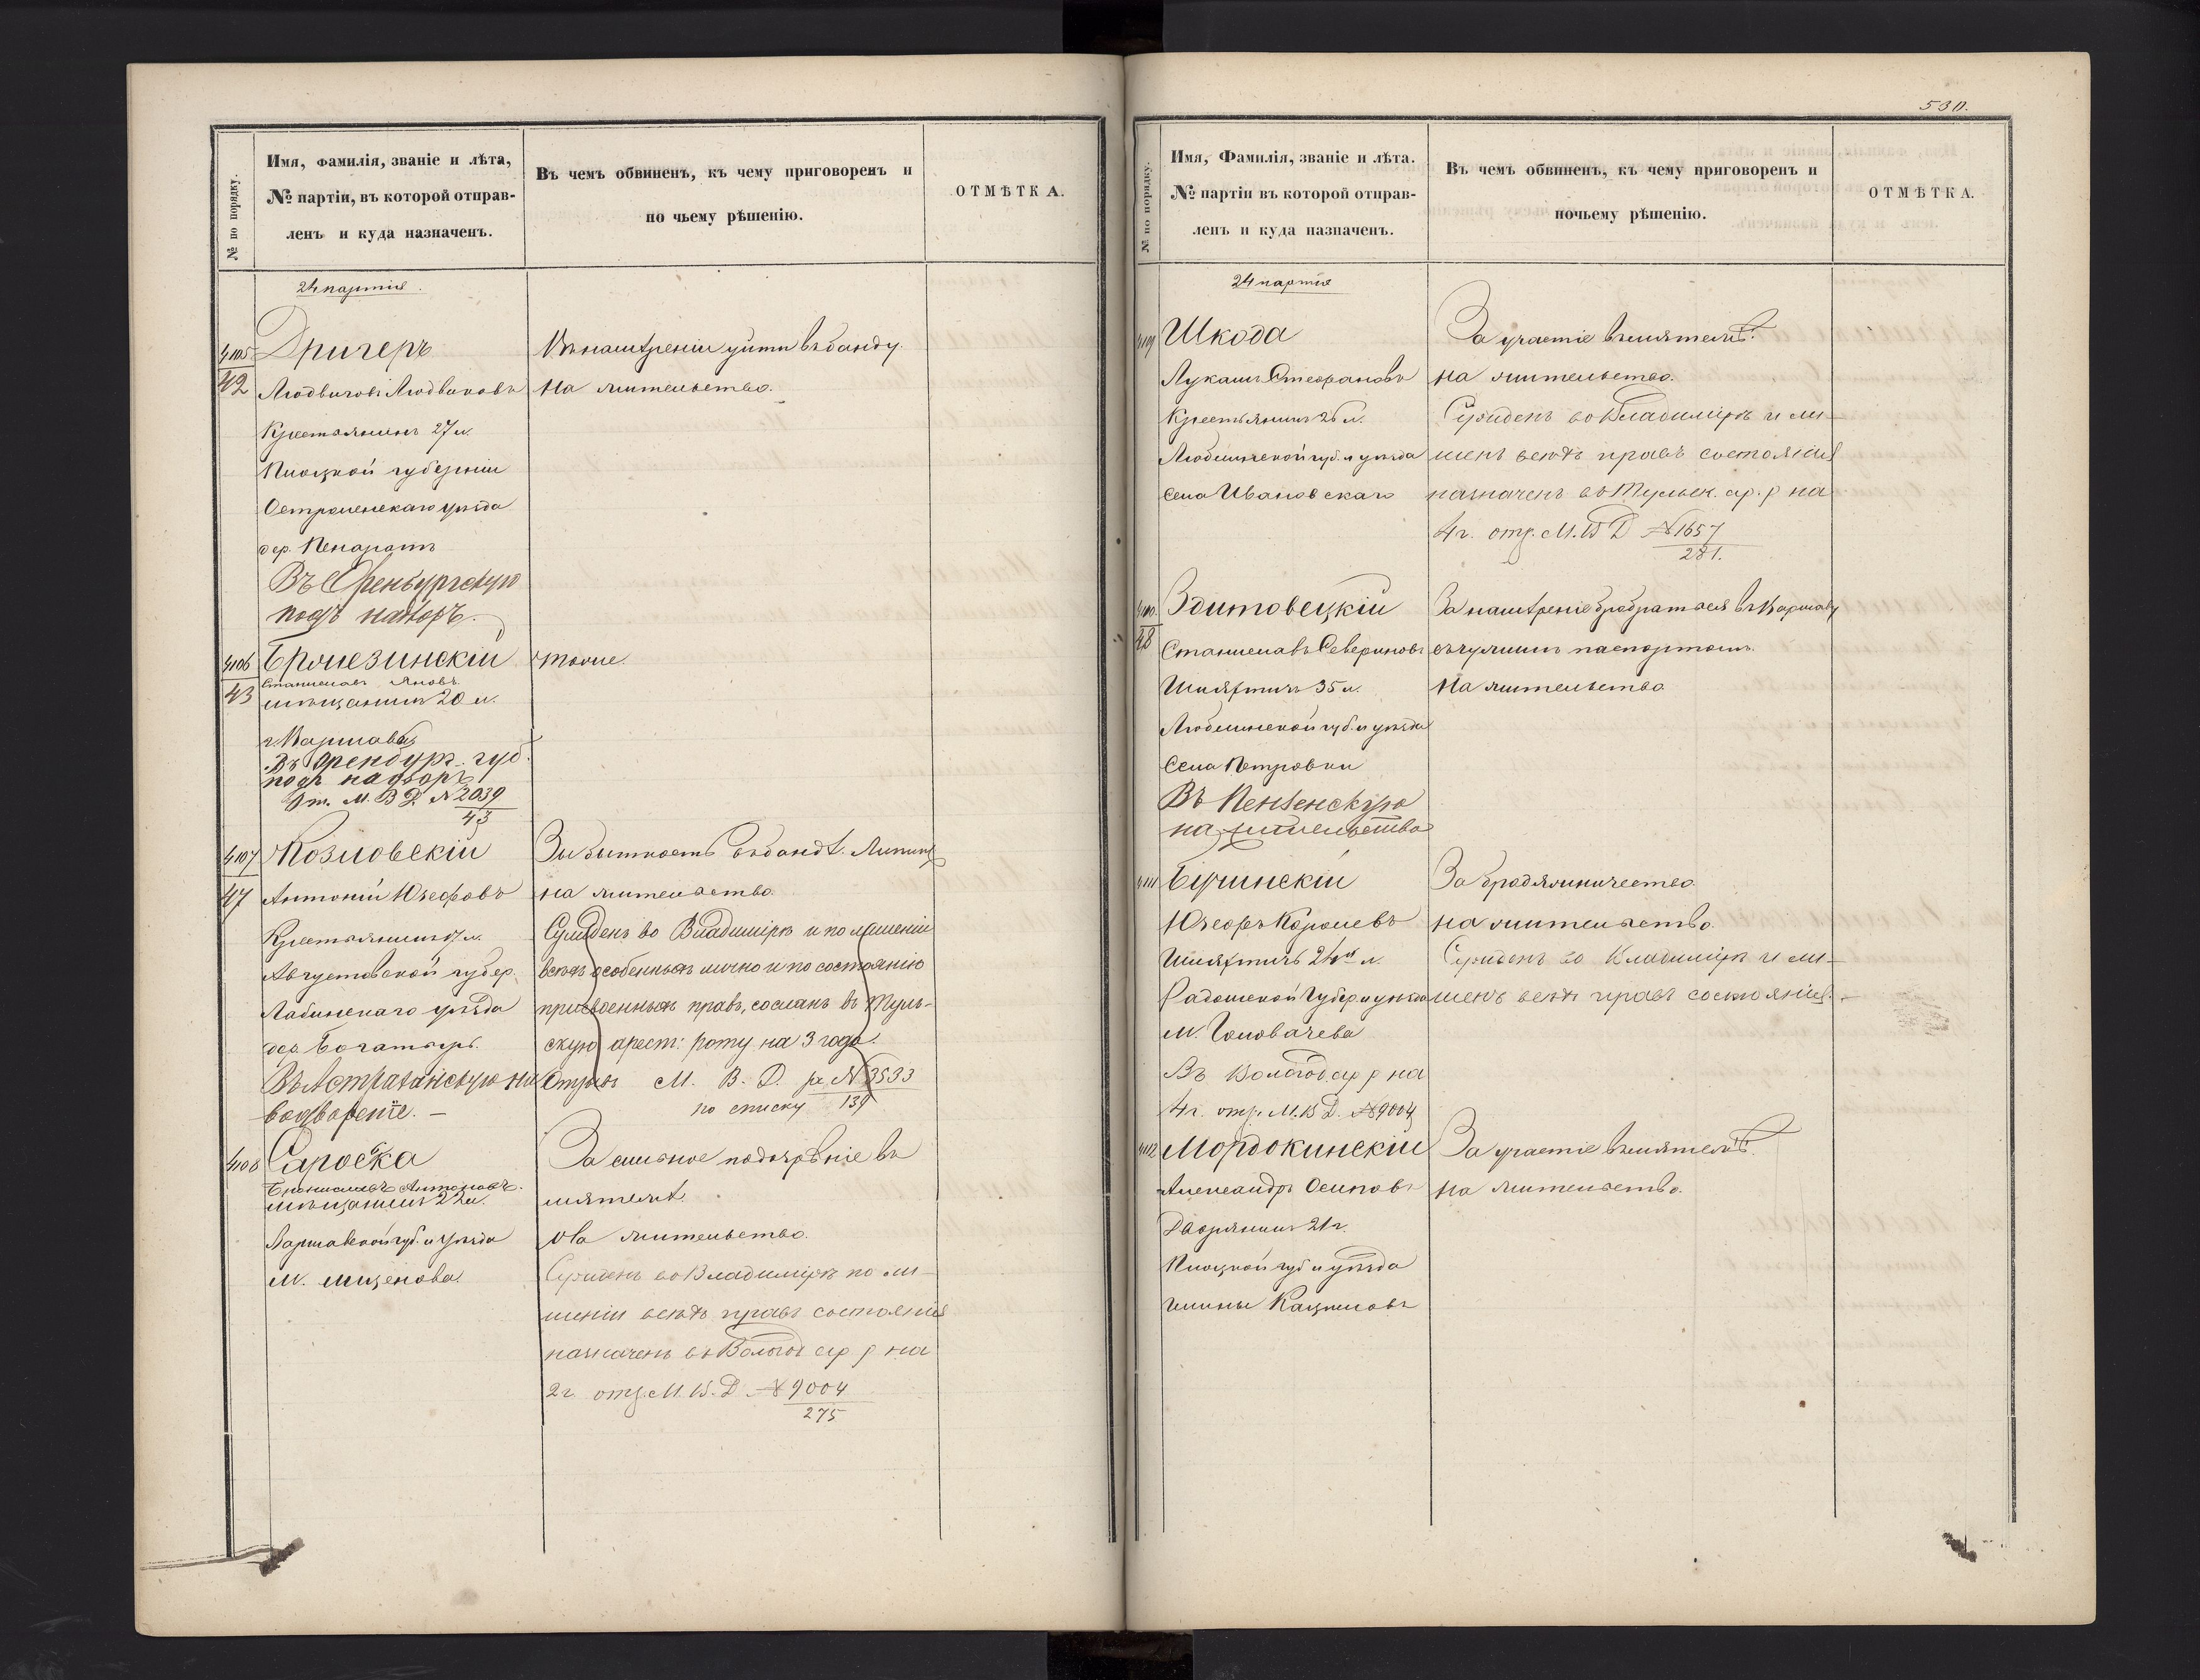 № по порядку.
Имя, Фамилія, званіе и лѣта,
№ партіи, въ которой отправ-
ленъ и куда назначенъ.
Въ чемъ обвиненъ, къ чему приговоренъ и
по чьему рѣшенію.
ОТМѢТКА.
24 партія.
4105
42
Дригеръ
Людвигъ Людвиковъ
Крестьянинъ 27 л.
Плоцкой губерніи
уѣзда
дер.
Въ Оренбургскую
подъ надзоръ.
Въ намѣреніи уйти въ банду.
На жительство.
4106
43
Станиславъ Яновъ
мѣщанинъ 20 л.
г. Варшавы
Въ Оренбург. губ.
подъ надзоръ
От. М. В. Д. № 2039
43
тоже.
4107
47
Козловскій
Антоній Юзефовъ
Крестьянинъ л.
Августовской губер.
уѣзда
дер. Богатыр.
Въ Астраханскую на
водвореніе. –
За бытность въ бандѣ
на жительство.
Сужденъ во Владимірѣ и по лишеніи
всѣхъ особенныхъ лично и по состоянію
присвоенныхъ правъ, сосланъ въ Туль-
скую арест: роту на 3 года.
М. В. Д. № 3533
по списку 139
4108
Сароска
Брониславъ Антоновъ.
мѣщанинъ 22 л.
Варшавской губ. и уѣзда
м.
За сильное подозрѣніе въ
мятежѣ.
На жительство.
Сужденъ во Владимірѣ по ли-
шеніи всѣхъ правъ состоянія
назначенъ въ Волог ар р на
2 г. отз. М. В. Д. № 9004
275
530.
№ по порядку.
Имя, Фамилія, званіе и лѣта.
№ партіи въ которой отправ-
ленъ и куда назначенъ.
Въ чемъ обвиненъ, къ чему приговоренъ и
почьему рѣшенію.
ОТМѢТКА.
24 партія
4109
Шкода
Лукашъ Стефановъ
Крестьянинъ 26 л.
Люблинской губ. и уѣзда
села Ивановскаго
За участіе въ мятежѣ.
на жительство.
Сужденъ во Владимірѣ и ли-
шенъ всѣхъ правъ состоянія
назначенъ въ Тульск. ар. р на
4 г. отз. М. В. Д № 1657
281.
4110
48
Здитовецкій
Станиславъ Севериновъ
Шляхтичъ 35 л.
Люблинской губ. и уѣзда
села Петровки
Въ Пензенскую
на жительство
За намѣреніе пробраться въ Варшаву
съ чужимъ паспортомъ.
На жительство
4111
Бучинскій
Юзефъ Каролевъ
Шляхтичъ 24 л.
Радомской Губер и уѣзда
м. Головачева
Въ Вологод. ар р на
4 г. отз. М. В. Д. № 9004
За бродяжничество.
на жительство.
Сужденъ во Владимірѣ и ли-
шенъ всѣхъ правъ состоянія. –
4112
Мордокинскій
Александръ Осиповъ
Дворянинъ 21 г.
Плоцкой губ и уѣзда
гмины
За участіе въ мятежѣ.
На жительство.